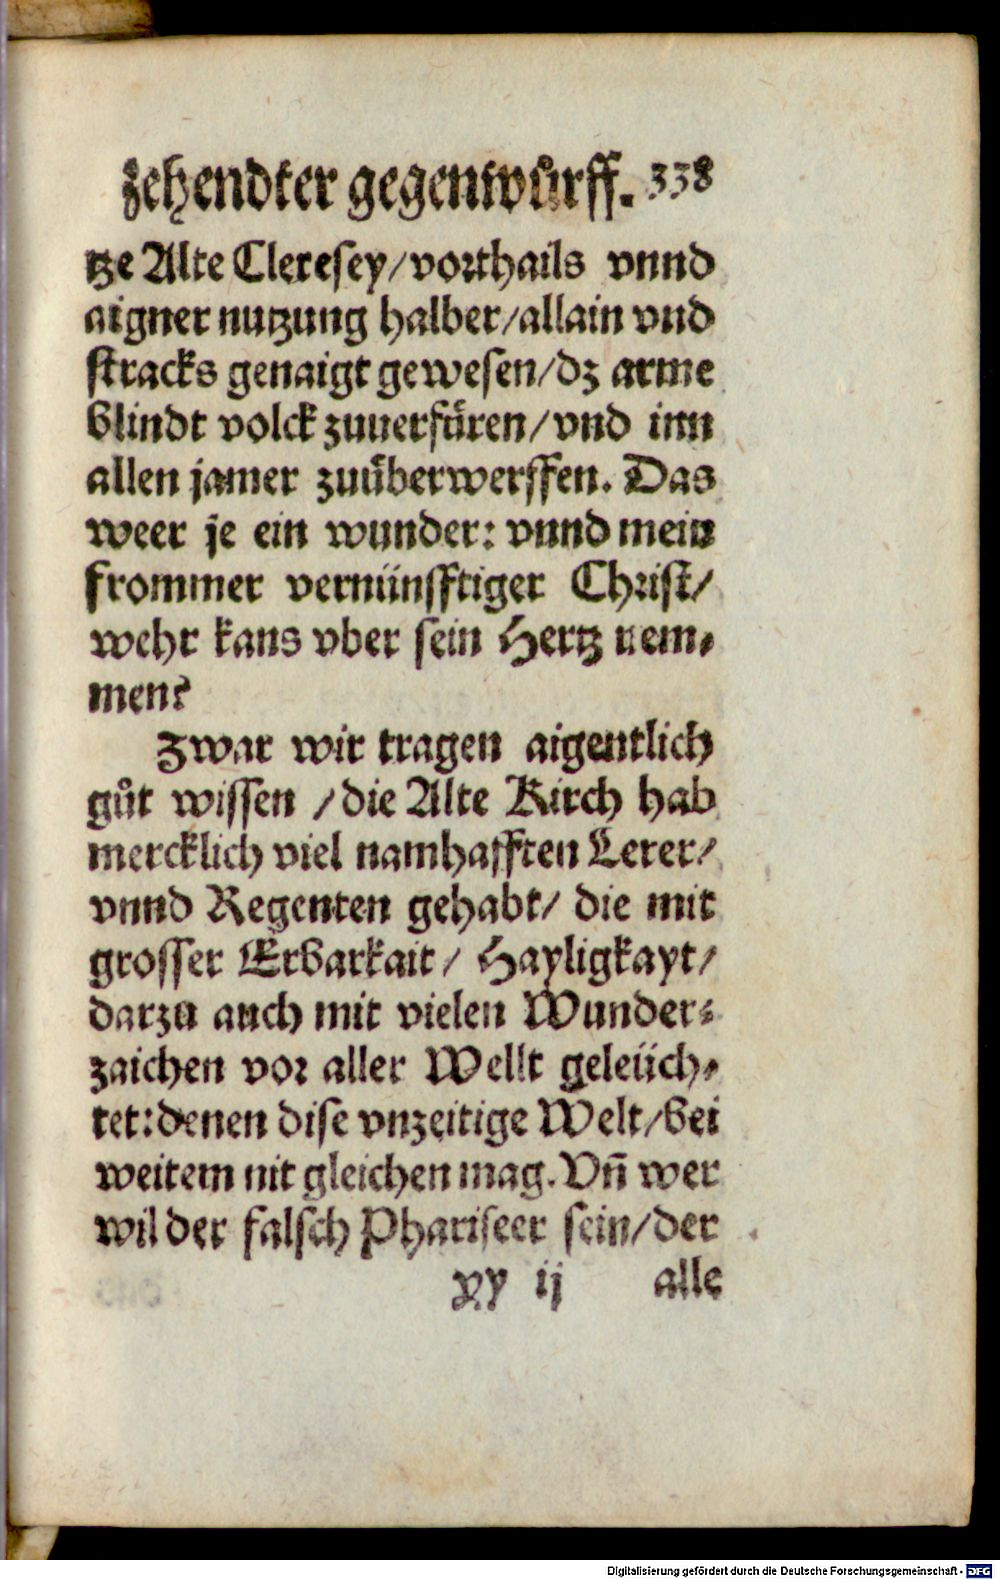 zehendter gegenwuͤrff. 338
tze Alte Cleresey/vorthails vnnd
aigner nutzung halber/allain vnd
stracks genaigt gewesen/dz arme
blindt volck zuuerfuͤren/vnd inn
allen jamer zuuͤberwerffen. Das
weer je ein wunder: vnnd mein
frommer vernünfftiger Christ/
wehr kans vber sein Hertz nem⸗
men?
Zwar wir tragen aigentlich
guͦt wissen /die Alte Kirch hab
mercklich viel namhafften Lerer/
vnnd Regenten gehabt/ die mit
grosser Erbarkait/ Hayligkayt/
darzu auch mit vielen Wunder⸗
zaichen vor aller Wellt geleüch⸗
tet: denen dise vnzeitige Welt/bei
weitem nit gleichen mag. Vñ wer
wil der falsch Phariseer sein/der
xy ij alle
Digitalisierung gefördert durch die Deutsche Forschungsgemeinschaft - DFG